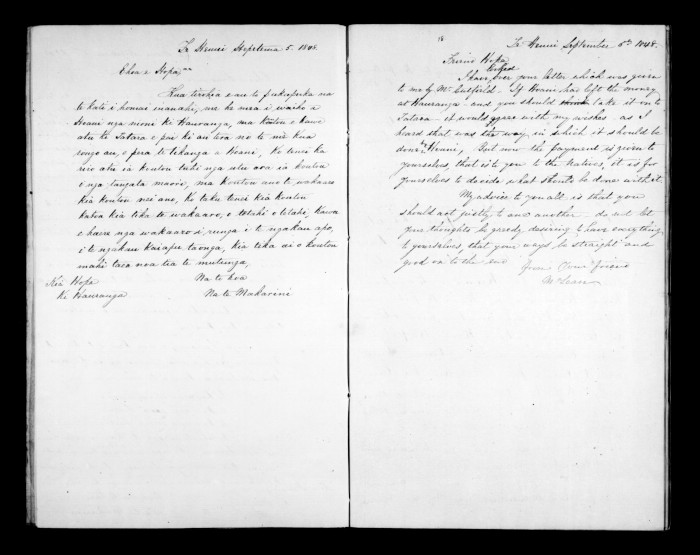 Te Henui Hepetema 5. 1848
Ehoa e Hopa,
Kua tirohia e au te pukapuka na
te hate i homai inanahi, me he mea i waiho a
Heani nga moni ki Hauranga, ma koutou e kawe
atu ki Tatara e pai ki au
rongo au, e pera te tikanga a Heani, Ko tenei ka
riro atu ia koutou tuhi nga utu
i nga tangata maori, ma koutou ano te wakaaro
kia koutou Ko taku tenei kia koutou
katoa kia tika te wakaaro, o tetehi o tetahi, Kaua
e haere nga wakaaro i runga i te ngakau apo,
i te ngakau kaiapu taonga, kia tika ai o koutou
mahi taea noa tia te mutunga,
Na te hoa
Kia Hopa
Ki Hauranga
Na te Makarini
Te Henui September 5th 1848.
Friend Hopa
I have looked over your letter which was given
to me by Mr. If Heani has left the money
at Hauranga and you should take it on to
Tatara it would agree with my wishes as I
heard that was the way in which it should be
done by Heani, But now the payment is given to
yourselves, that is to you to the Natives, it is for
yourselves to decide what should be done with it.
My advice to you all is that you
should act justly to one another do not let
your thoughts be greedy desiring to have everything
to yourselves, that your ways be straight and
good on to the end
Your friend
McLean